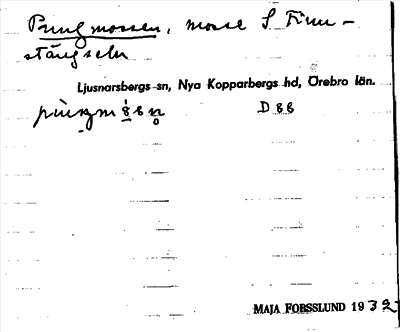 Pungmossen, mosse S Finn-
stängseln
Ljusnarsbergs sn, Nya Kopparbergs hd, Örebro län.
D 88
MAJA FORSSLUND 1932